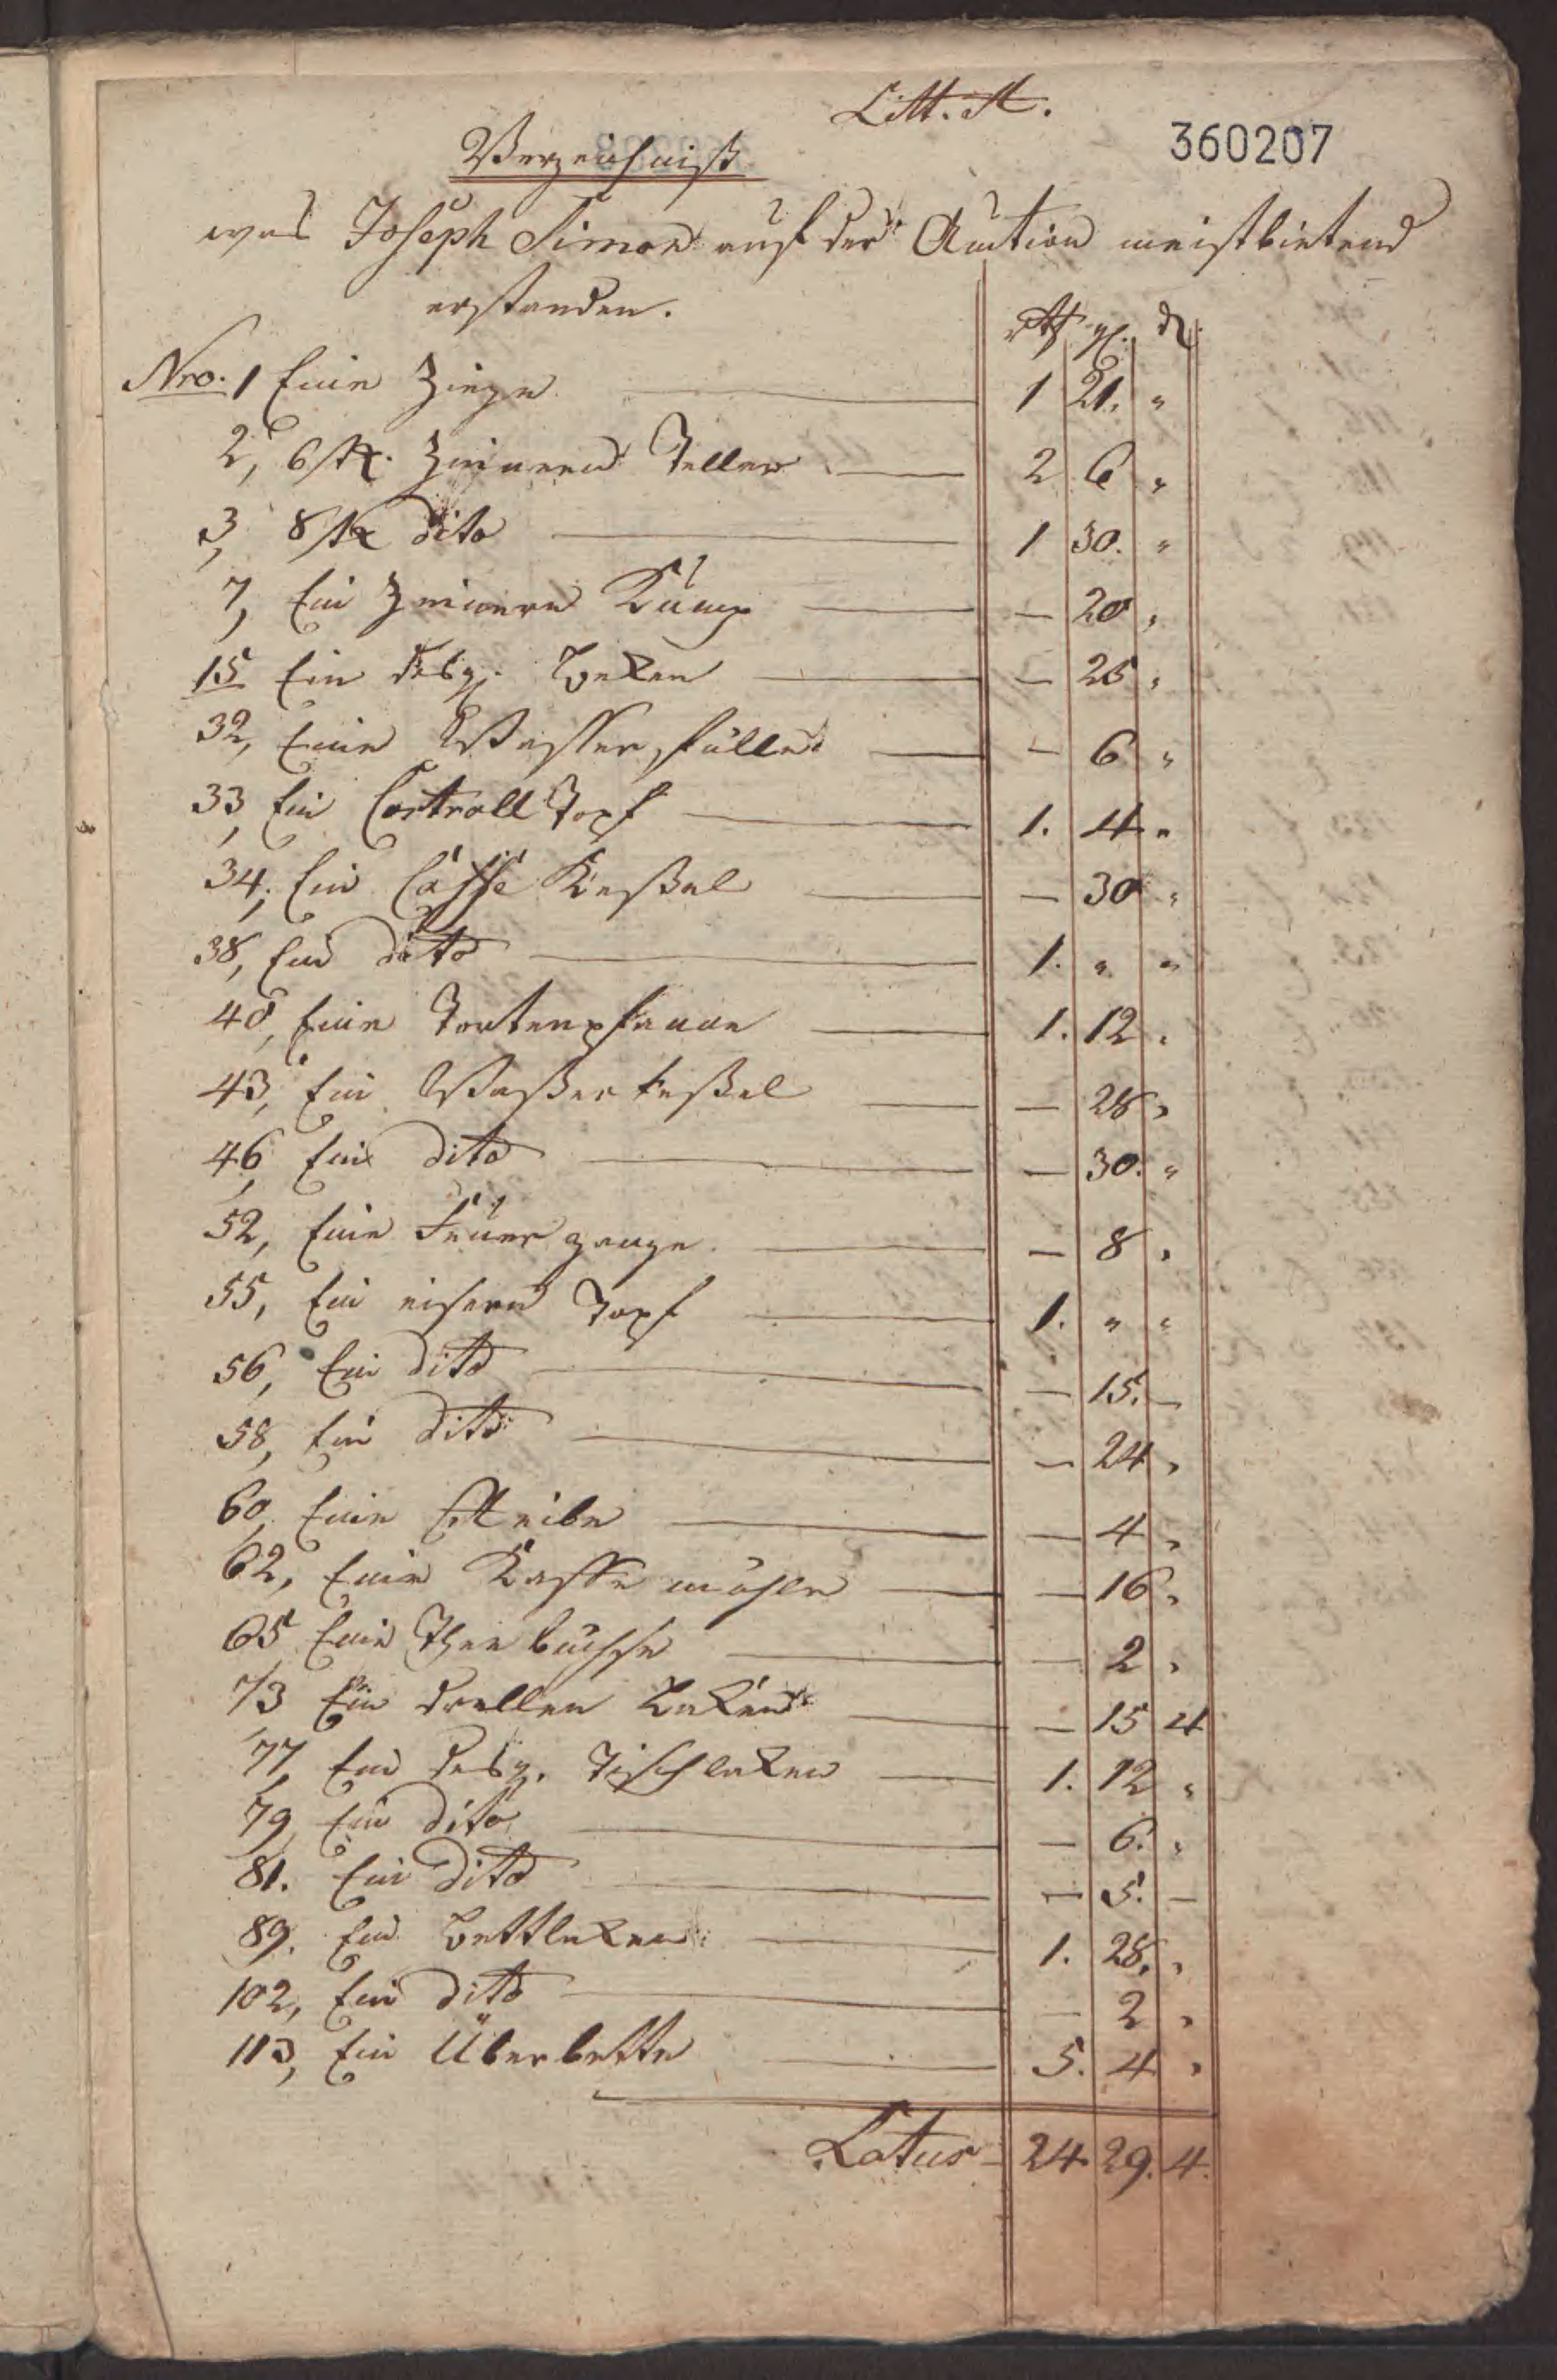 Litt. A.
360207
Verzeichniß
was Joseph Simon auf der Auction meistbietend
erstanden.
rth gl. d
Nro. 1 Eine Ziege — 1 21. "
2, 6 stk. Zinnern Teller — 2 6 "
3, 8 stk dito — 1 30. "
7, Ein Zinnern Kump — — 20 "
15 Ein desgl. Beken — — 25 "
32, Eine Wasser fülle — — 6 "
33, Ein Castroll Topf — 1. 4. "
34, Ein Caffé Keßel — — 30 "
38, Ein dito — 1. " "
40, Eine Tortenpfanne — 1. 12 "
43, Ein Waßer keßel — — 28 "
46, Ein dito — — 30. "
52, Eine Feüer zange — — 8 "
55, Ein eisern Topf — 1. " "
56, Ein dito — — 15. —
58, Ein dito — — 24 "
60, Eine Reibe — — 4 "
62, Eine Kaffe mühle — — 16 "
65 Eine Thee büchse — — 2 "
73 Ein drellen Laken — — 15 4
77, Ein desgl. Tischlaken — 1. 12 "
79, Ein dito — — 6. "
81. Ein dito — — 5. —
89. Ein Bettlaken — 1. 28. "
102, Ein dito — — 2 "
113, Ein Überbette — 5. 4 "
Latus — 24. 29. 4.